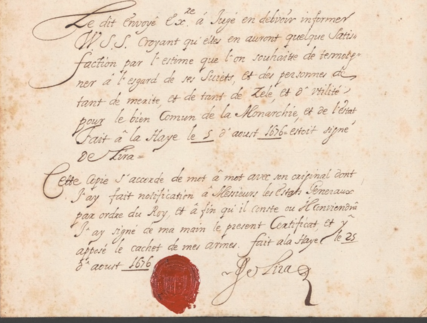 Le dit Envoyé Ex.re á Jugé en debvoir informer
W.S.S. Croyant qu'elles en auront quelque Satis-
faction par l'estime que l'on souhaite de
ner á l'esgard de ses Sujets, et des personnes de
tant de merite, et de tant de Zele et d'utilité
pour le bien Comun de la Monarchie, et de l'estat
Fait á la Haye le 5 d'aoust 1676 estoit signé
De Lira
Cette Copie s'accorde de mot á mot avec son original dont
J'ay fait notification á Messieurs les Estats Generaux
par ordre du Roy, et á fin qu'il conste ou
J'ay signé de ma main le present Certificat, et y
apposé le cachet de mes armes. fait ala Haye le 25
d'aoust 1676
De Lira